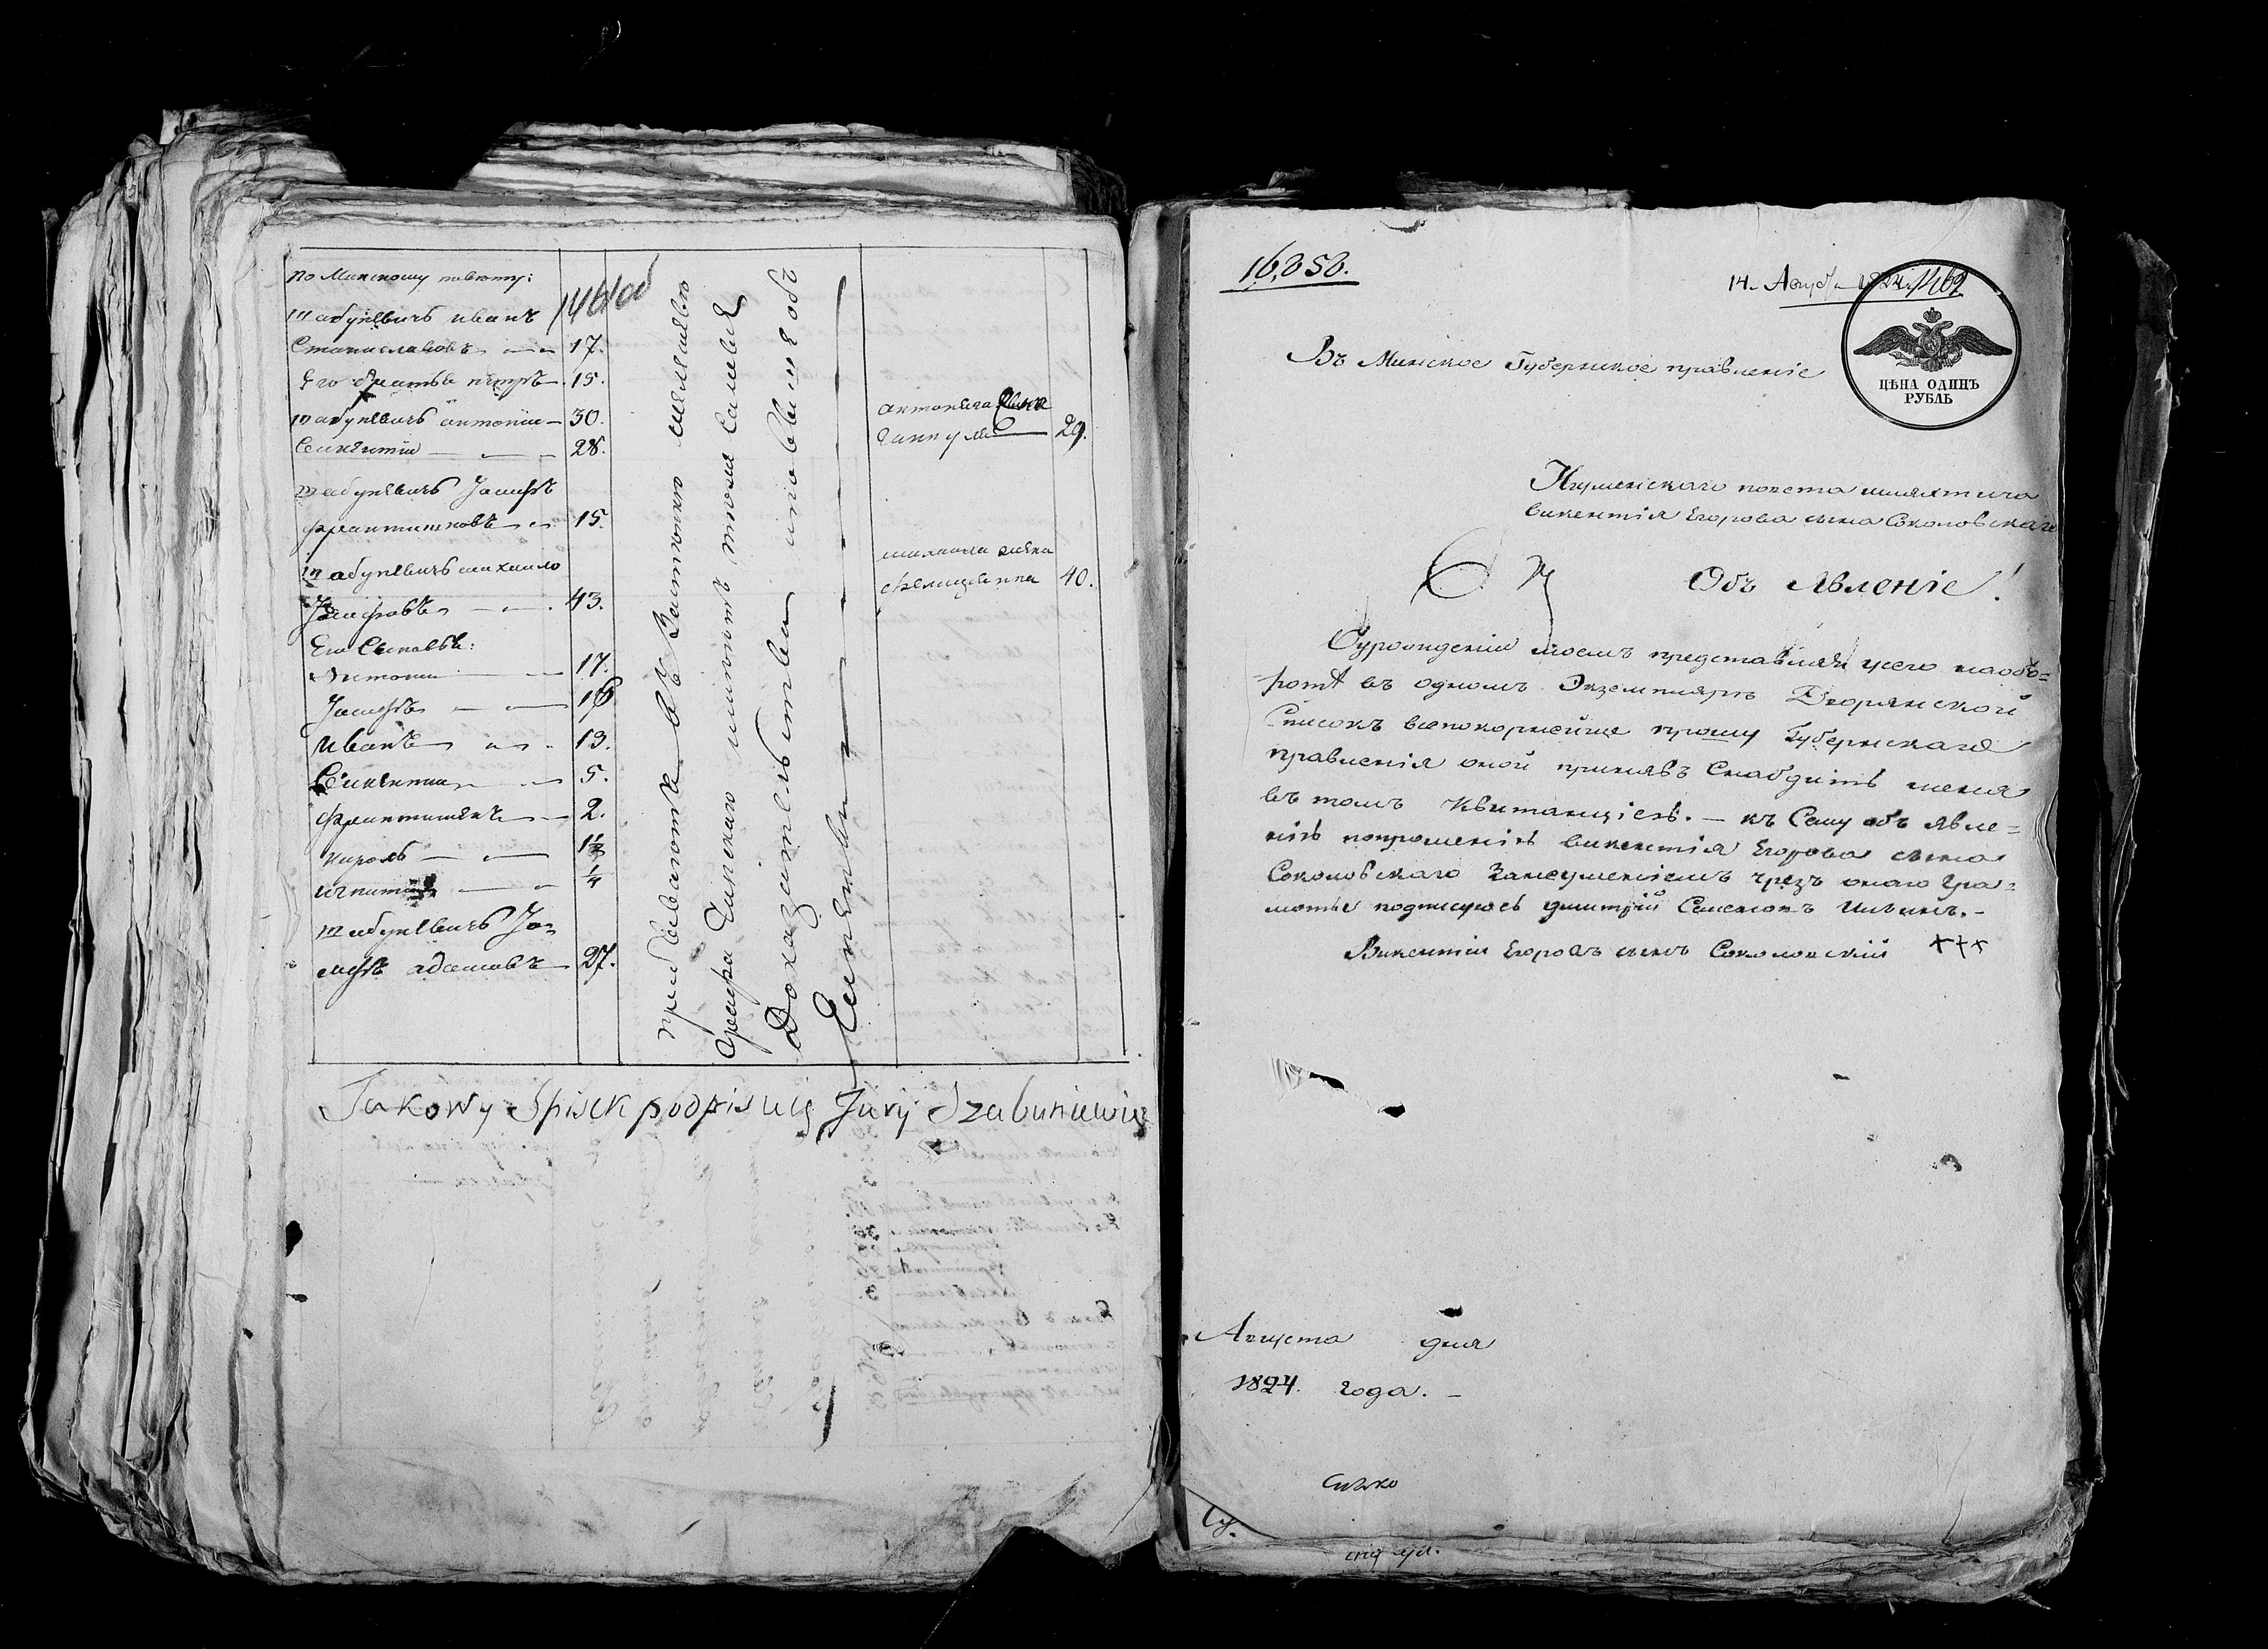 по Минскому повету:
146 об
Шабуневичъ иванъ
Станиславовъ 17.
Его братъ петръ 15.
Шабуневичъ антоніи 30.
Викентіи 28.
антонига жена
29.
Шабуневичъ Іосифъ
франтишковъ 15.
Шабуневичъ михаило
Іосифовъ 43.
михаила жена
фелициянна 40.
Его Сыновья:
Антони 17.
Іосифъ 16
иванъ 13.
Викентии 5.
франтишекъ 2.
кароль 1½
игнати ¼
Шабуневичъ Іо=
сифъ адамовъ 27.
пребываютъ въ
графа Чапскаго
Доказательства
Takowy Spisek podpisuię Jury Szabuniewicz
16,858.
14. Август 1824. 1462
ЦѢНА ОДИНЪ
РУБЛЬ
Въ Минское Губернское правленіе
Игуменскаго повета шляхтича
викентія Егорова сына Соколовскаго
Объ Явленіе!
О урожденіи моемъ представляя у сего наобо=
ротѣ въ одномъ Экземпляръ Дворянской
Списокъ всепокорнейше прошу Губернскаго
правленія оной принявъ Снабдить меня
въ томъ Квитанціею. — къ Сему объ явле=
нію попрошенію викентія Егорова сына
Соколовскаго Занеумениемъ чрезъ онаго гра=
моты подписуюсь дмитрій Семеновъ Ильинъ. –
Викентіи Егоровъ сынъ Соколовскій ххх
Августа дня
1824. года. –